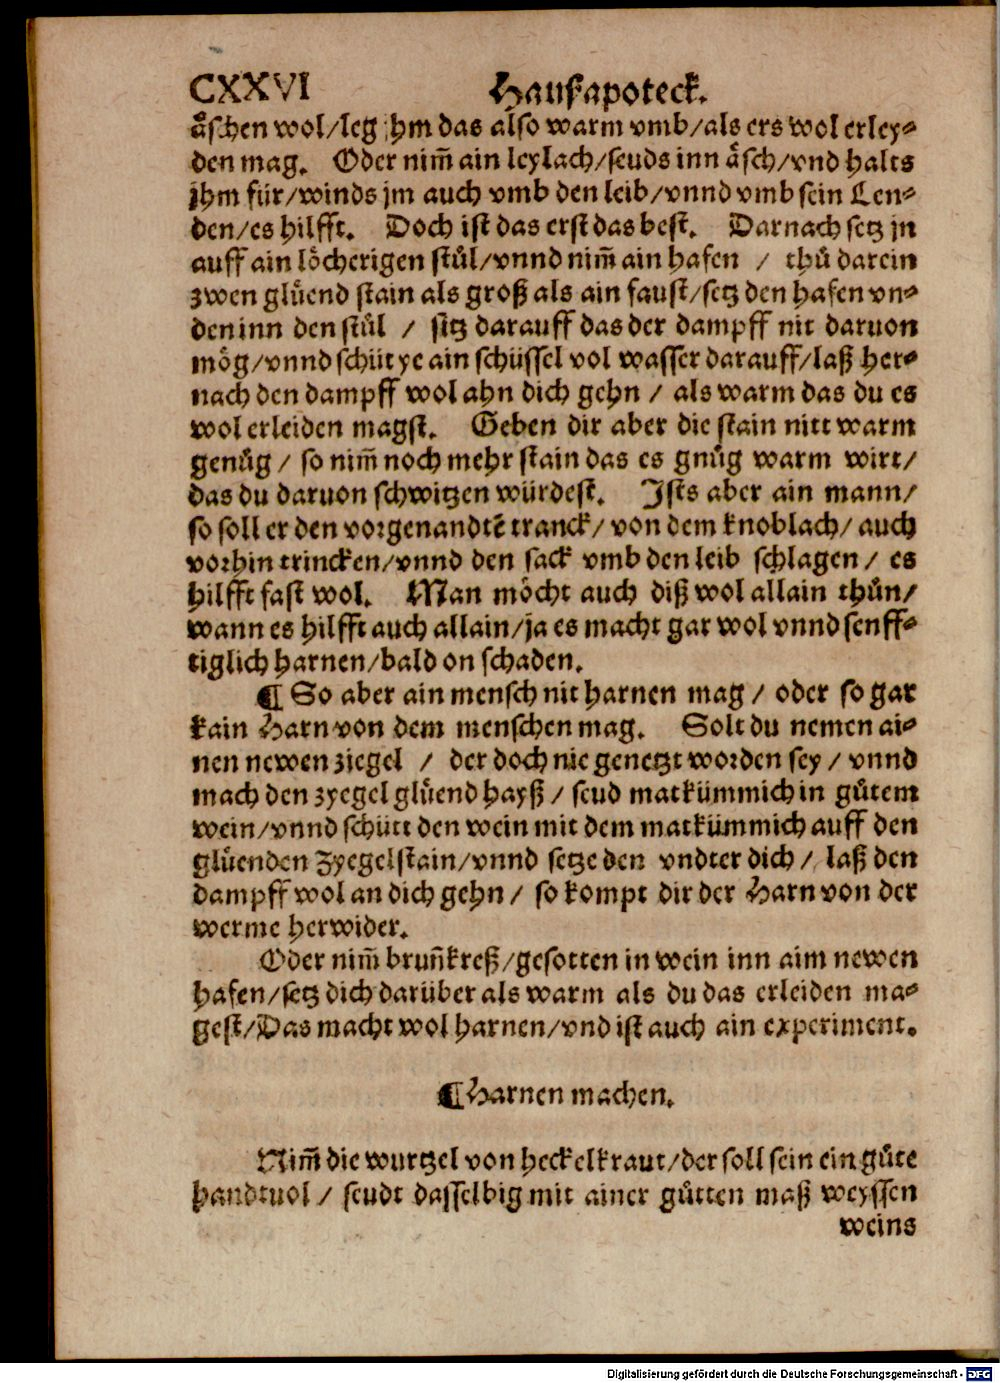 CXXVI Hausapoteck.
aͤschen wol/leg jhm das also warm vmb/als ers wol erley⸗
den mag. Oder nim̃ ain leylach/seuds inn aͤsch/vnd halts
jhm für/winds jm auch vmb den leib/vnnd vmb sein Len⸗
den/es hilfft. Doch ist das erst das best. Darnach setz jn
auff ain loͤcherigen stuͦl/vnnd nim̃ ain hafen / thuͦ darein
zwen gluͤend stain als groß als ain faust/setz den hafen vn⸗
den inn den stuͦl / sitz darauff das der dampff nit daruon
moͤg/vnnd schüt ye ain schüssel vol wasser darauff/laß her⸗
nach den dampff wol ahn dich gehn / als warm das du es
wol erleiden magst. Geben dir aber die stain nitt warm
genuͦg / so nim̃ noch mehr stain das es gnuͦg warm wirt/
das du daruon schwitzen würdest. Ists aber ain mann/
so soll er den vorgenandtẽ tranck/von dem knoblach/auch
vorhin trincken/vnnd den sack vmb den leib schlagen / es
hilfft fast wol. Man moͤcht auch diß wol allain thuͦn/
wann es hilfft auch allain/ja es macht gar wol vnnd senff⸗
tiglich harnen/bald on schaden.
¶ So aber ain mensch nit harnen mag / oder so gar
kain Harn von dem menschen mag. Solt du nemen ai⸗
nen newen ziegel / der doch nie genetzt worden sey / vnnd
mach den zyegel gluͤend hayß / seud matkümmich in guͦtem
wein/vnnd schütt den wein mit dem matkümmich auff den
gluͤenden Zyegelstain/vnnd setze den vndter dich / laß den
dampff wol an dich gehn / so kompt dir der Harn von der
werme herwider.
Oder nim̃ brun̄kreß/gesotten in wein inn aim newen
hafen/setz dich darüber als warm als du das erleiden ma⸗
gest/Das macht wol harnen/vnd ist auch ain experiment.
¶Harnen machen.
Nim̃ die wurtzel von heckelkraut/der soll sein ein guͦte
handtuol / seudt dasselbig mit ainer guͦtten maß weyssen
weins
Digitalisierung gefördert durch die Deutsche Forschungsgemeinschaft - DFG